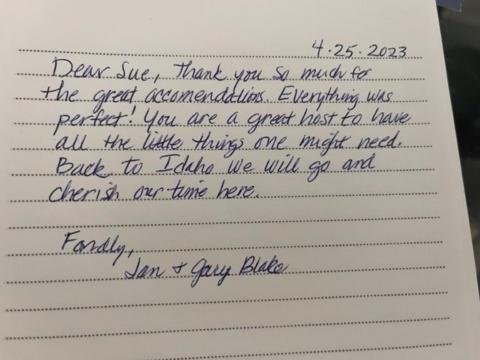 4.25.2023
Dear Sue, Thank you so much for
the great accomendations. Everything was
perfect! You are a great host to have
all the little things one might need.
Back to Idaho we will go and
cherish our time here.
Fondly,
Jan + Gary Blake